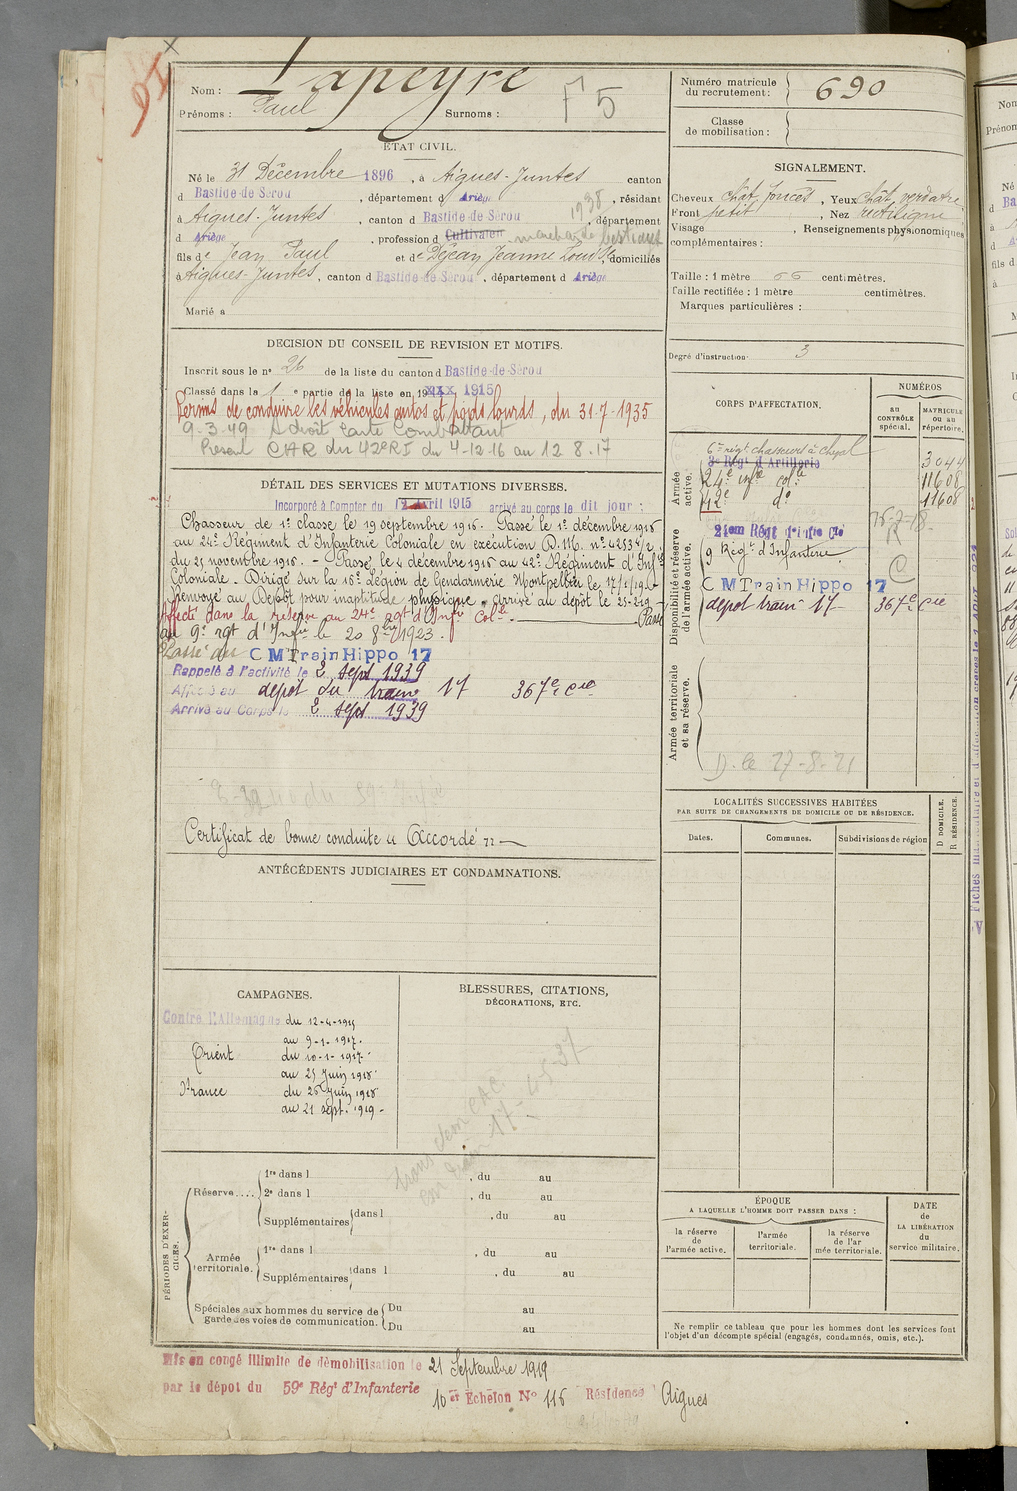 Nom : Lapeyre
Prénoms : Paul Surnoms :
F 5
Numéro matricule du recrutement : 690
Classe de mobilisation :
ÉTAT CIVIL.
Né le 31 Décembre 1896, à Aigues-Juntes canton
d Bastide-de-Sérou, département d Ariège, résidant
à Aigues-Juntes, canton d Bastide-de-Sérou, département
1938
d Ariège, profession d Cultivateur marchand de bestiaux
fils de Jean Paul et de Dejean Jeanne, domiciliés
à Aigues-Juntes, canton d Bastide-de-Sérou, département d Ariège
Marié a
SIGNALEMENT.
Cheveux chât. foncés, Yeux chât. verdatre
Front petit, Nez rectiligne
Visage, Renseignements physionomiques
complémentaires :
Taille : 1 mètre 66 centimètres.
Taille rectifiée : 1 mètre centimètres.
Marques particulières :
Degré d'instruction 3
DECISION DU CONSEIL DE REVISION ET MOTIFS.
Inscrit sous le n° 26 de la liste du canton d Bastide-de-Sérou
Classé dans la 1 e partie de la liste en 19 1915
Permis de conduire les véhicules autos et poids lourds, du 31-7-1935
9-3-49 A droit Carte Combattant
CAR du 42e RI du 4-12-16 au 12 8-17
DÉTAIL DES SERVICES ET MUTATIONS DIVERSES.
Incorporé à Compter du 12 Avril 1915 arrivé au corps le dit jour :
Chasseur de 1e classe le 19 septembre 1916. Passé le 1e décembre 1916
au 24e Régiment d'Infanterie Coloniale en exécution D.M. n° 42534
du 25 novembre 1916. - Passé le 4 décembre 1916 au 42e Régiment d'Infie
Coloniale - Dirigé sur la 16e Légion de Gendarmerie Montpellier le
renvoyé au Dépôt pour inaptitude physique - arrivé au dépôt le
Affecté dans la réserve au 24e rgt d'Infie Colle Passé
au 9e rgt d'Infie le 20 8bre 1923.
Passé au C M Train Hippo 17
Rappelé à l'activité le 2 sept 1939
Affecté au depot du train 17 367e Cie
Arrivé au Corps le 2 sept 1939
Certificat de bonne conduite "Accordé"
CORPS D'AFFECTATION.
NUMÉROS
au CONTRÔLE spécial.
MATRICULE ou au répertoire.
Armée active.
6e régt chasseurs à cheval 3044
3e Régt d'Artillerie
24e infie colle 11608
42e do 11608
Disponibilité et réserve de l'armée active.
9 Régt d'Infanterie
C M Train Hippo 17
depot train 17 367e Cie
Armée territoriale et sa réserve.
D. le 27-8-21
LOCALITÉS SUCCESSIVES HABITÉES
PAR SUITE DE CHANGEMENTS DE DOMICILE OU DE RÉSIDENCE.
Dates. Communes. Subdivisions de région
D DOMICILE.
R RÉSIDENCE.
ANTÉCÉDENTS JUDICIAIRES ET CONDAMNATIONS.
CAMPAGNES.
Contre l'Allemagne du 12-4-1915
au 9-1-1917.
Orient du 10-1-1917.
au 25 Juin 1918
France du 26 Juin 1918
au 21 sept. 1919 -
BLESSURES, CITATIONS,
DÉCORATIONS, ETC.
PÉRIODES D'EXERCICES.
Réserve.... 1re dans l , du au
2e dans l , du au
Supplémentaires dans l , du au
Armée territoriale. 1re dans l , du au
Supplémentaires dans l , du au
Spéciales aux hommes du service de garde des voies de communication. Du au
Du au
ÉPOQUE
A LAQUELLE L'HOMME DOIT PASSER DANS :
la réserve de l'armée active.
l'armée territoriale.
la réserve de l'armée territoriale.
DATE de LA LIBÉRATION du service militaire.
Ne remplir ce tableau que pour les hommes dont les services font
l'objet d'un décompte spécial (engagés, condamnés, omis, etc.).
Mis en congé illimité de démobilisation le 21 Septembre 1919
par le dépôt du 59e Régt d'Infanterie
10 Echelon No 116 Résidence Aigues